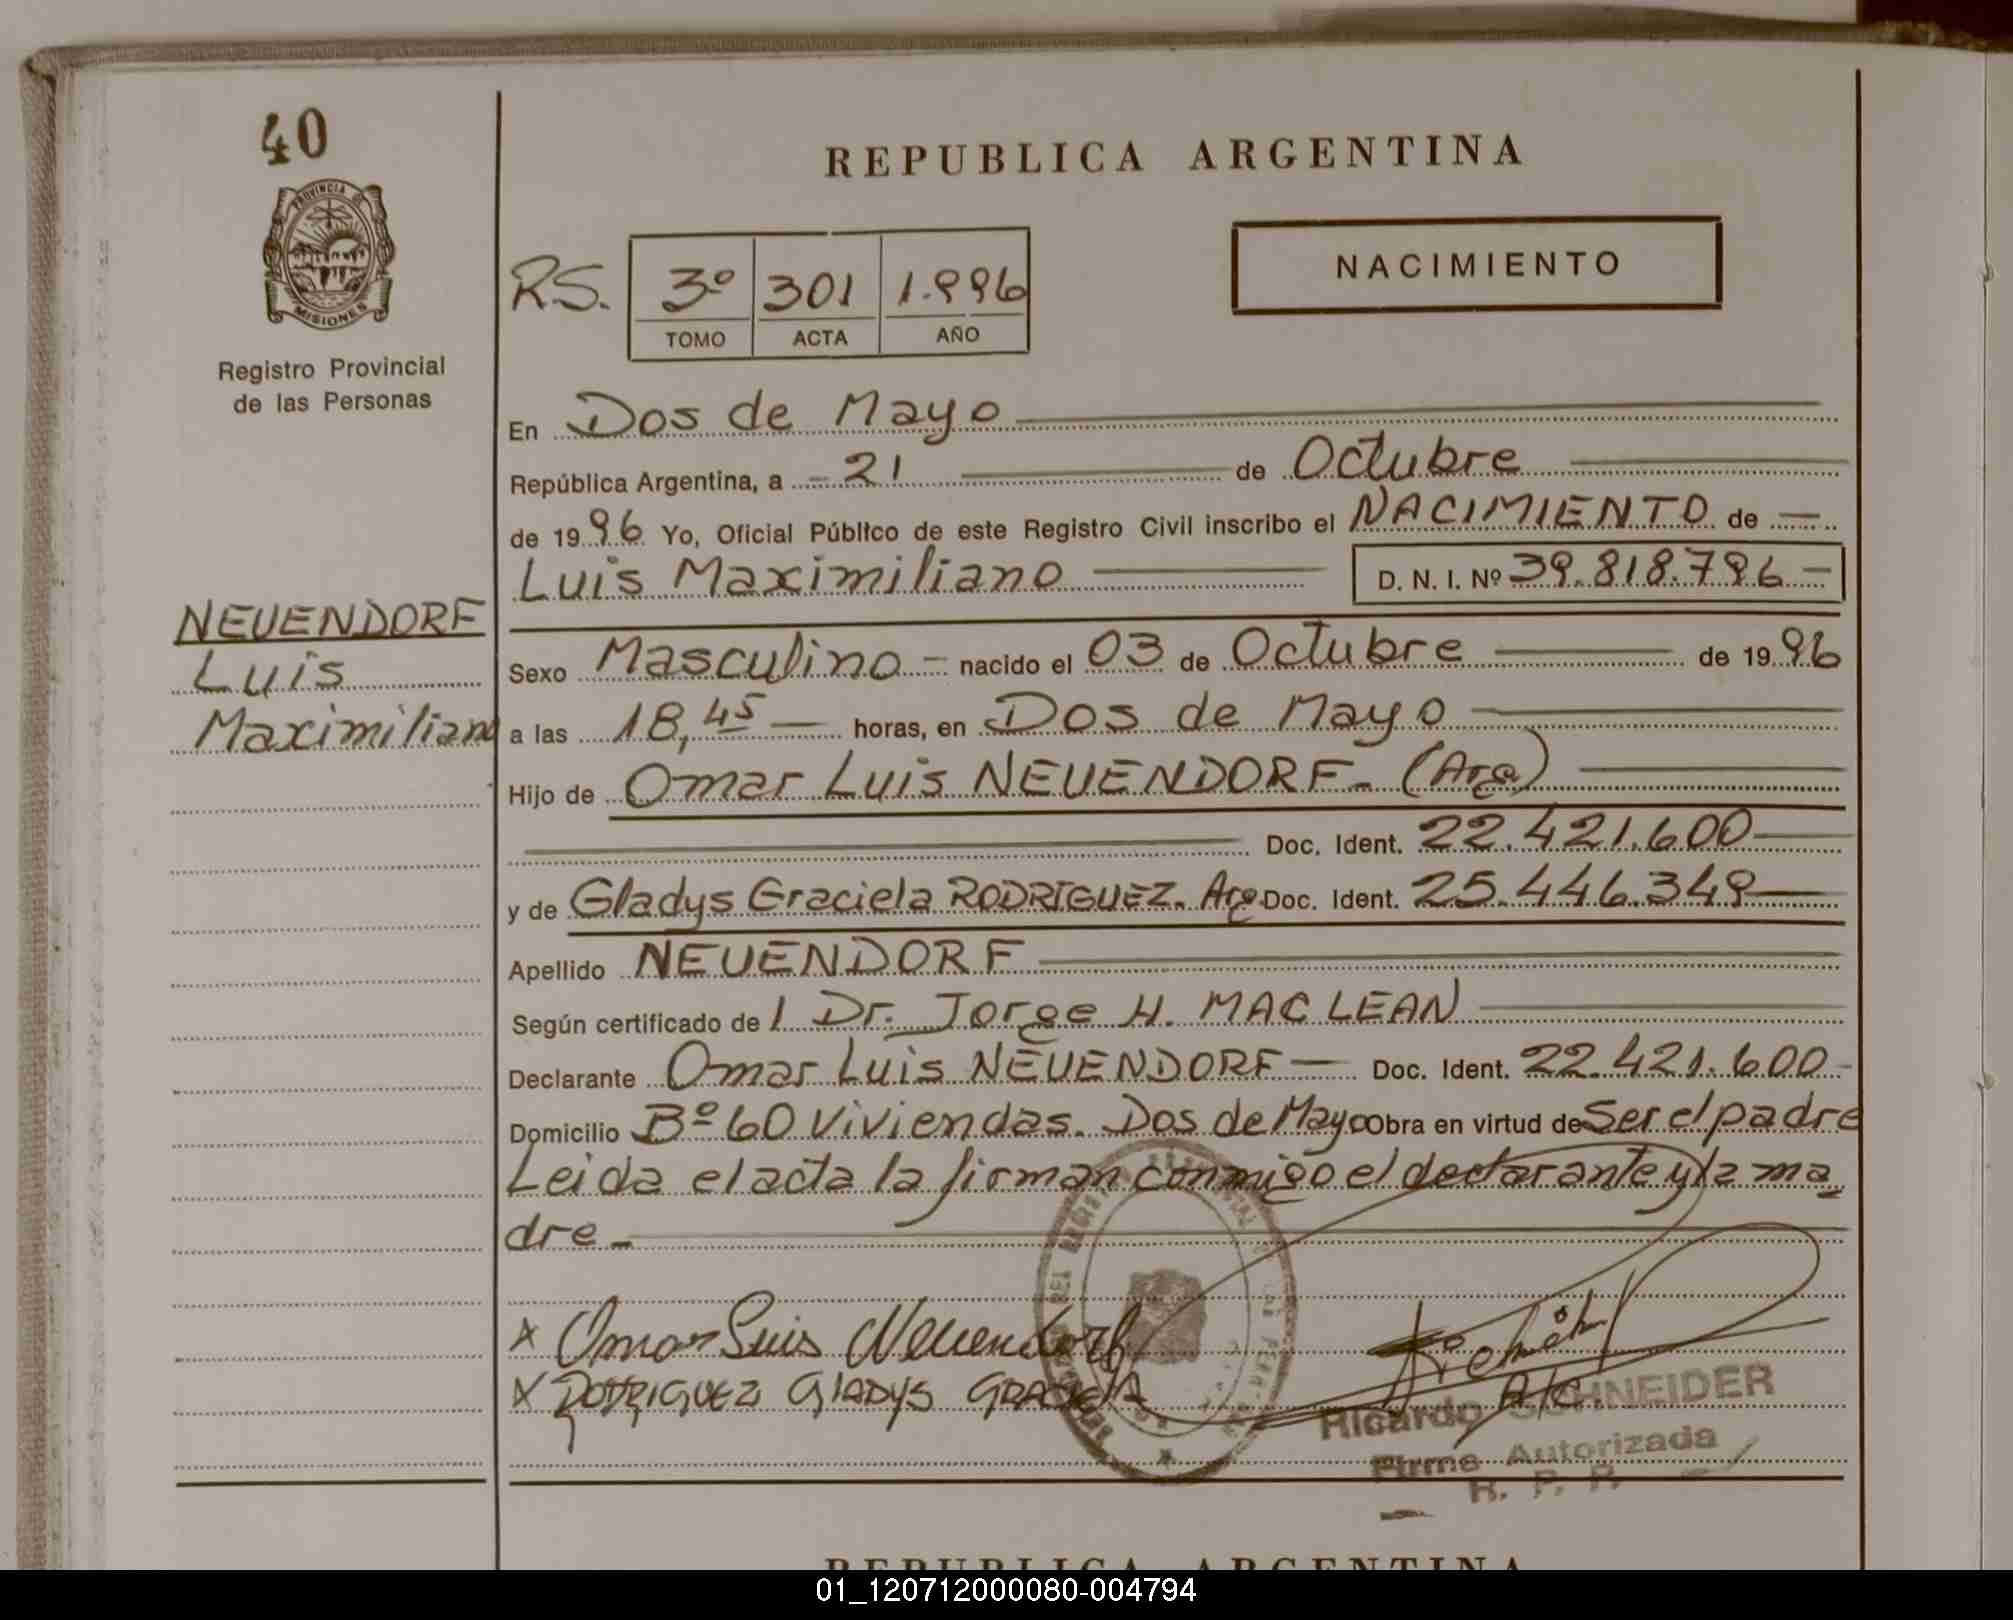 40
PROVINCIA DE
MISIONES
Registro Provincial
de las Personas
NEUENDORF
Luis
Maximiliano
REPUBLICA ARGENTINA
NACIMIENTO
RS. 3º 301 1.996
TOMO ACTA AÑO
En Dos de Mayo
República Argentina, a 21 de Octubre
de 1996 Yo, Oficial Público de este Registro Civil inscribo el NACIMIENTO de
Luis Maximiliano D. N. I. Nº 39.818.796
Sexo Masculino nacido el 03 de Octubre de 1996
a las 18,45 horas, en Dos de Mayo
Hijo de Omar Luis NEUENDORF. (Arg)
Doc. Ident. 22.421.600
y de Gladys Graciela RODRIGUEZ. Arg. Doc. Ident. 25.446.349
Apellido NEUENDORF
Según certificado de l Dr. Jorge H. MAC LEAN
Declarante Omar Luis NEUENDORF Doc. Ident. 22.421.600
Domicilio Bº 60 Viviendas. Dos de Mayo Obra en virtud de Ser el padre
Leida el acta la firman conmigo el declarante y la ma
dre
x Omar Luis Neuendorf
x RODRIGUEZ GLADYS GRACIELA
A/c
Ricardo SCHNEIDER
Firma Autorizada
R. P. P.
REPUBLICA ARGENTINA
01_120712000080-004794